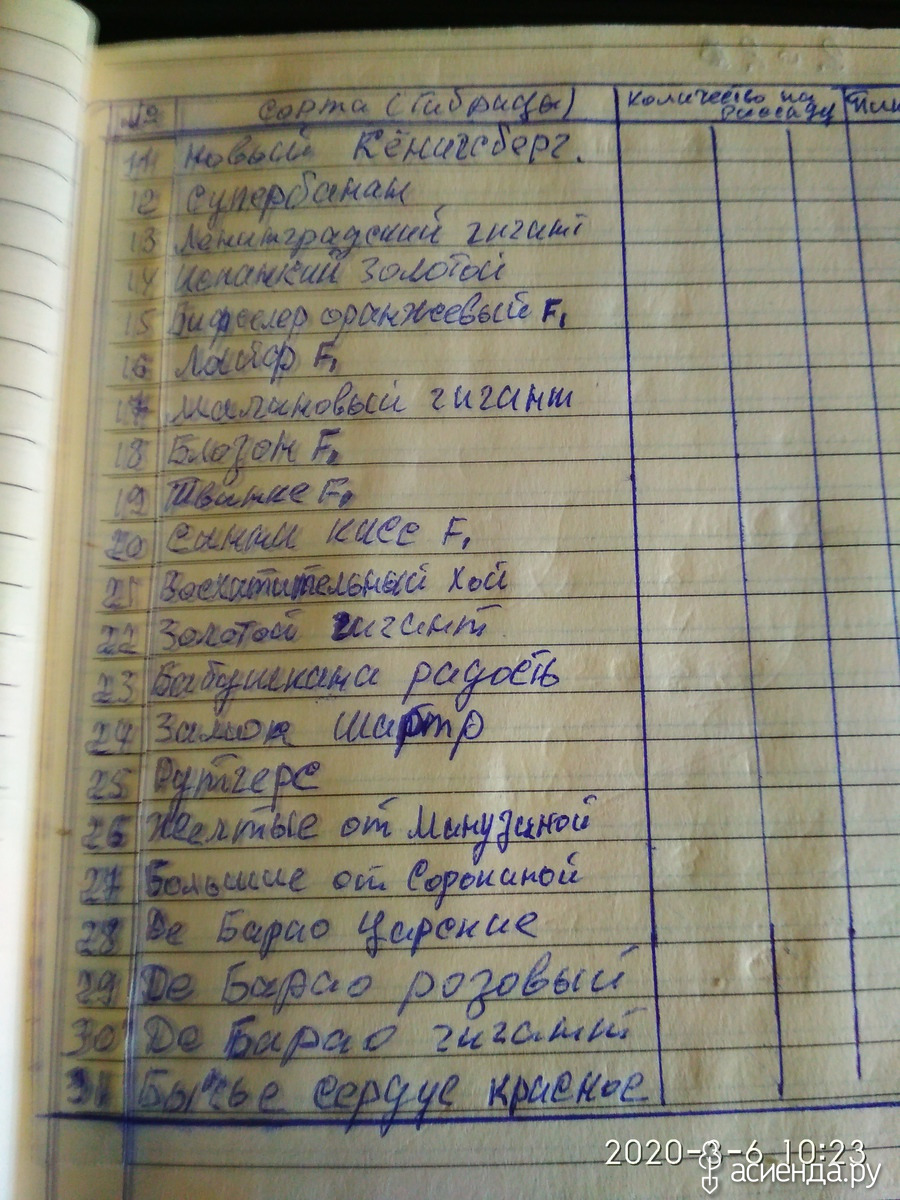 № Сорта (Гибриды) Количество на рассаду
11 Новый Кёнигсберг.
12 Супербанан
13 Ленинградский гигант
14 Испанкий золотой
15 Бифселер оранжевый F1
16 F1
17 Малиновый гигант
18 Блозон F1
19 F1
20 Санти кисс F1
21 Восхитительный хой
22 Золотой гигант
23 Бабушкина радость
24 Замок Шартр
25 Рутгерс
26 Желтые от Минузиной
27 Большие от Сорокиной
28 Де Барао Царские
29 Де Барао розовый
30 Де Барао гигант
31 Бычье сердце красное
2020-3-6 10:23
асиенда.ру